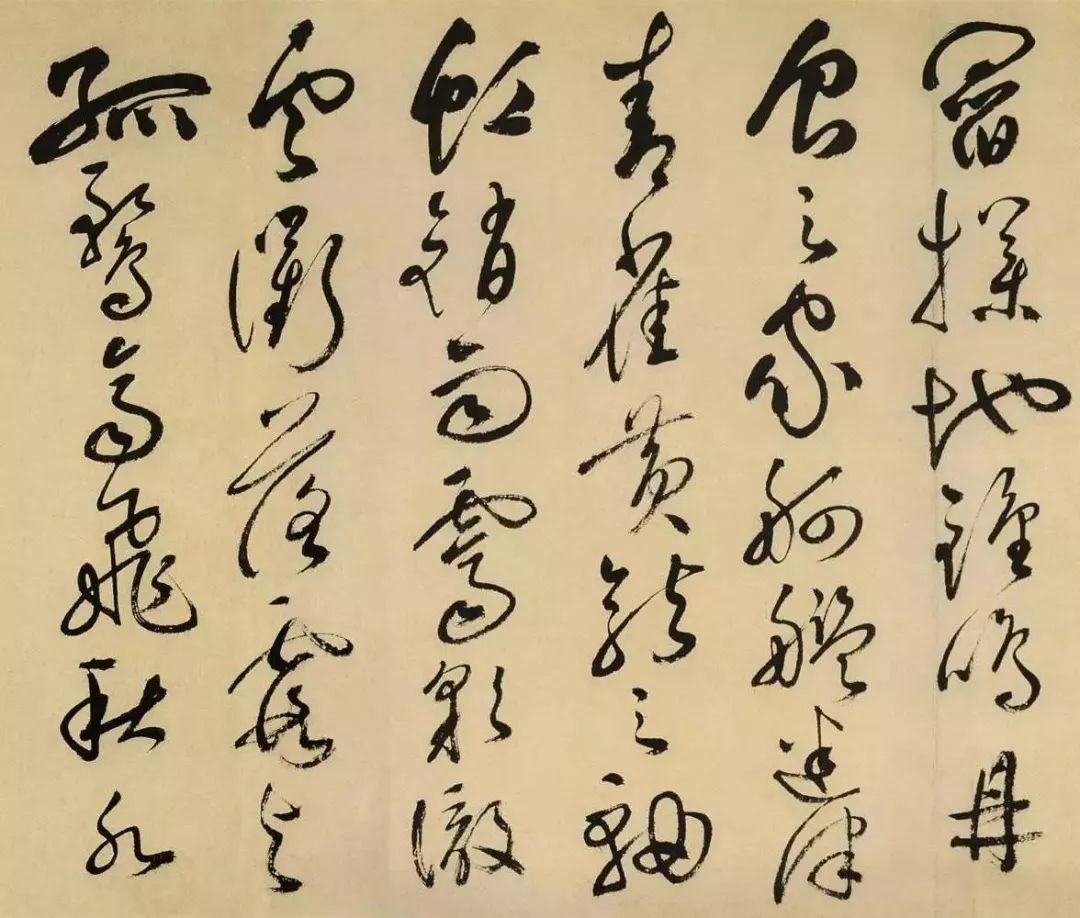 閻撲地鍾鳴鼎
食之家舸艦迷津
青雀黃龍之軸
虹銷雨霽彩徹
雲衢落霞與
孤鶩齊飛秋水